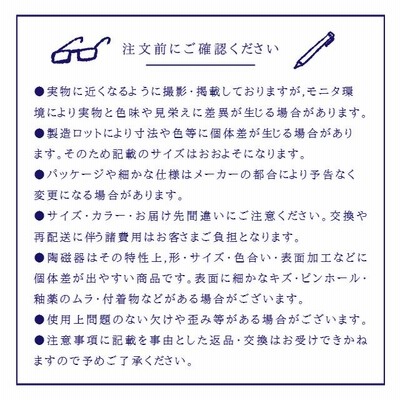 注文前にご確認ください
●実物に近くなるように撮影・掲載しておりますが,モニタ環
境により実物と色味や見栄えに差異が生じる場合があります。
●製造ロットにより寸法や色等に個体差が生じる場合があり
ます。そのため記載のサイズはおおよそになります。
●パッケージや細かな仕様はメーカーの都合により予告なく
変更になる場合があります。
●サイズ・カラー・お届け先間違いにご注意ください。交換や
再配送に伴う諸費用はお客さまご負担となります。
●陶磁器はその特性上,形・サイズ・色合い・表面加工などに
個体差が出やすい商品です。表面に細かなキズ・ピンホール・
釉薬のムラ・付着物などがある場合がございます。
●使用上問題のない欠けや歪み等がある場合がございます。
●注意事項に記載を事由とした返品・交換はお受けできかね
ますので予めご了承ください。